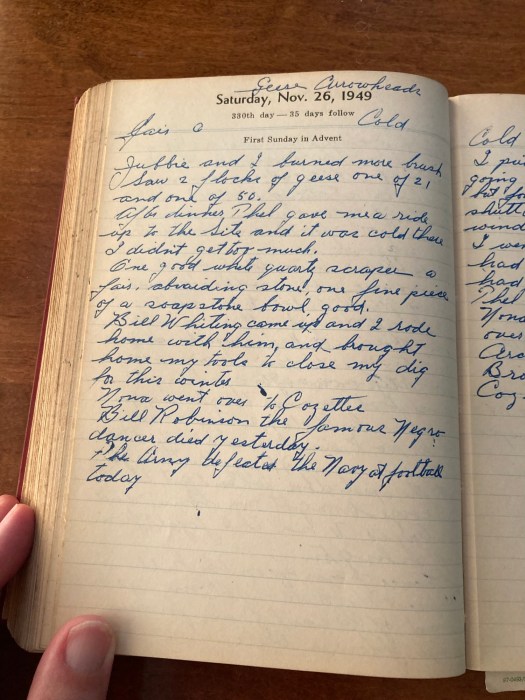 Geese Arrowheads
Saturday, Nov. 26, 1949
330th day — 35 days follow
Fair Cold
First Sunday in Advent
Tubbie and I burned more brush
I saw 2 flocks of geese one of 21
and one of 50.
After dinner Phil gave me a ride
up to the site and it was cold there
I didnt get too much.
One good white quartz scraper a
fair abraiding stone, one fine piece
of a soapstone bowl, good.
Bill Whiting came up and I rode
home with them, and brought
home my tools to close my dig
for this winter
Nona went over to Cozettes
Bill Robinson the famous Negro
dancer died yesterday.
The Army defeated the Navy at football
today
Cold
I put
going
but
shutt
wind
I wen
had
had
Phil
Nona
over
Aro
Bro
Coz